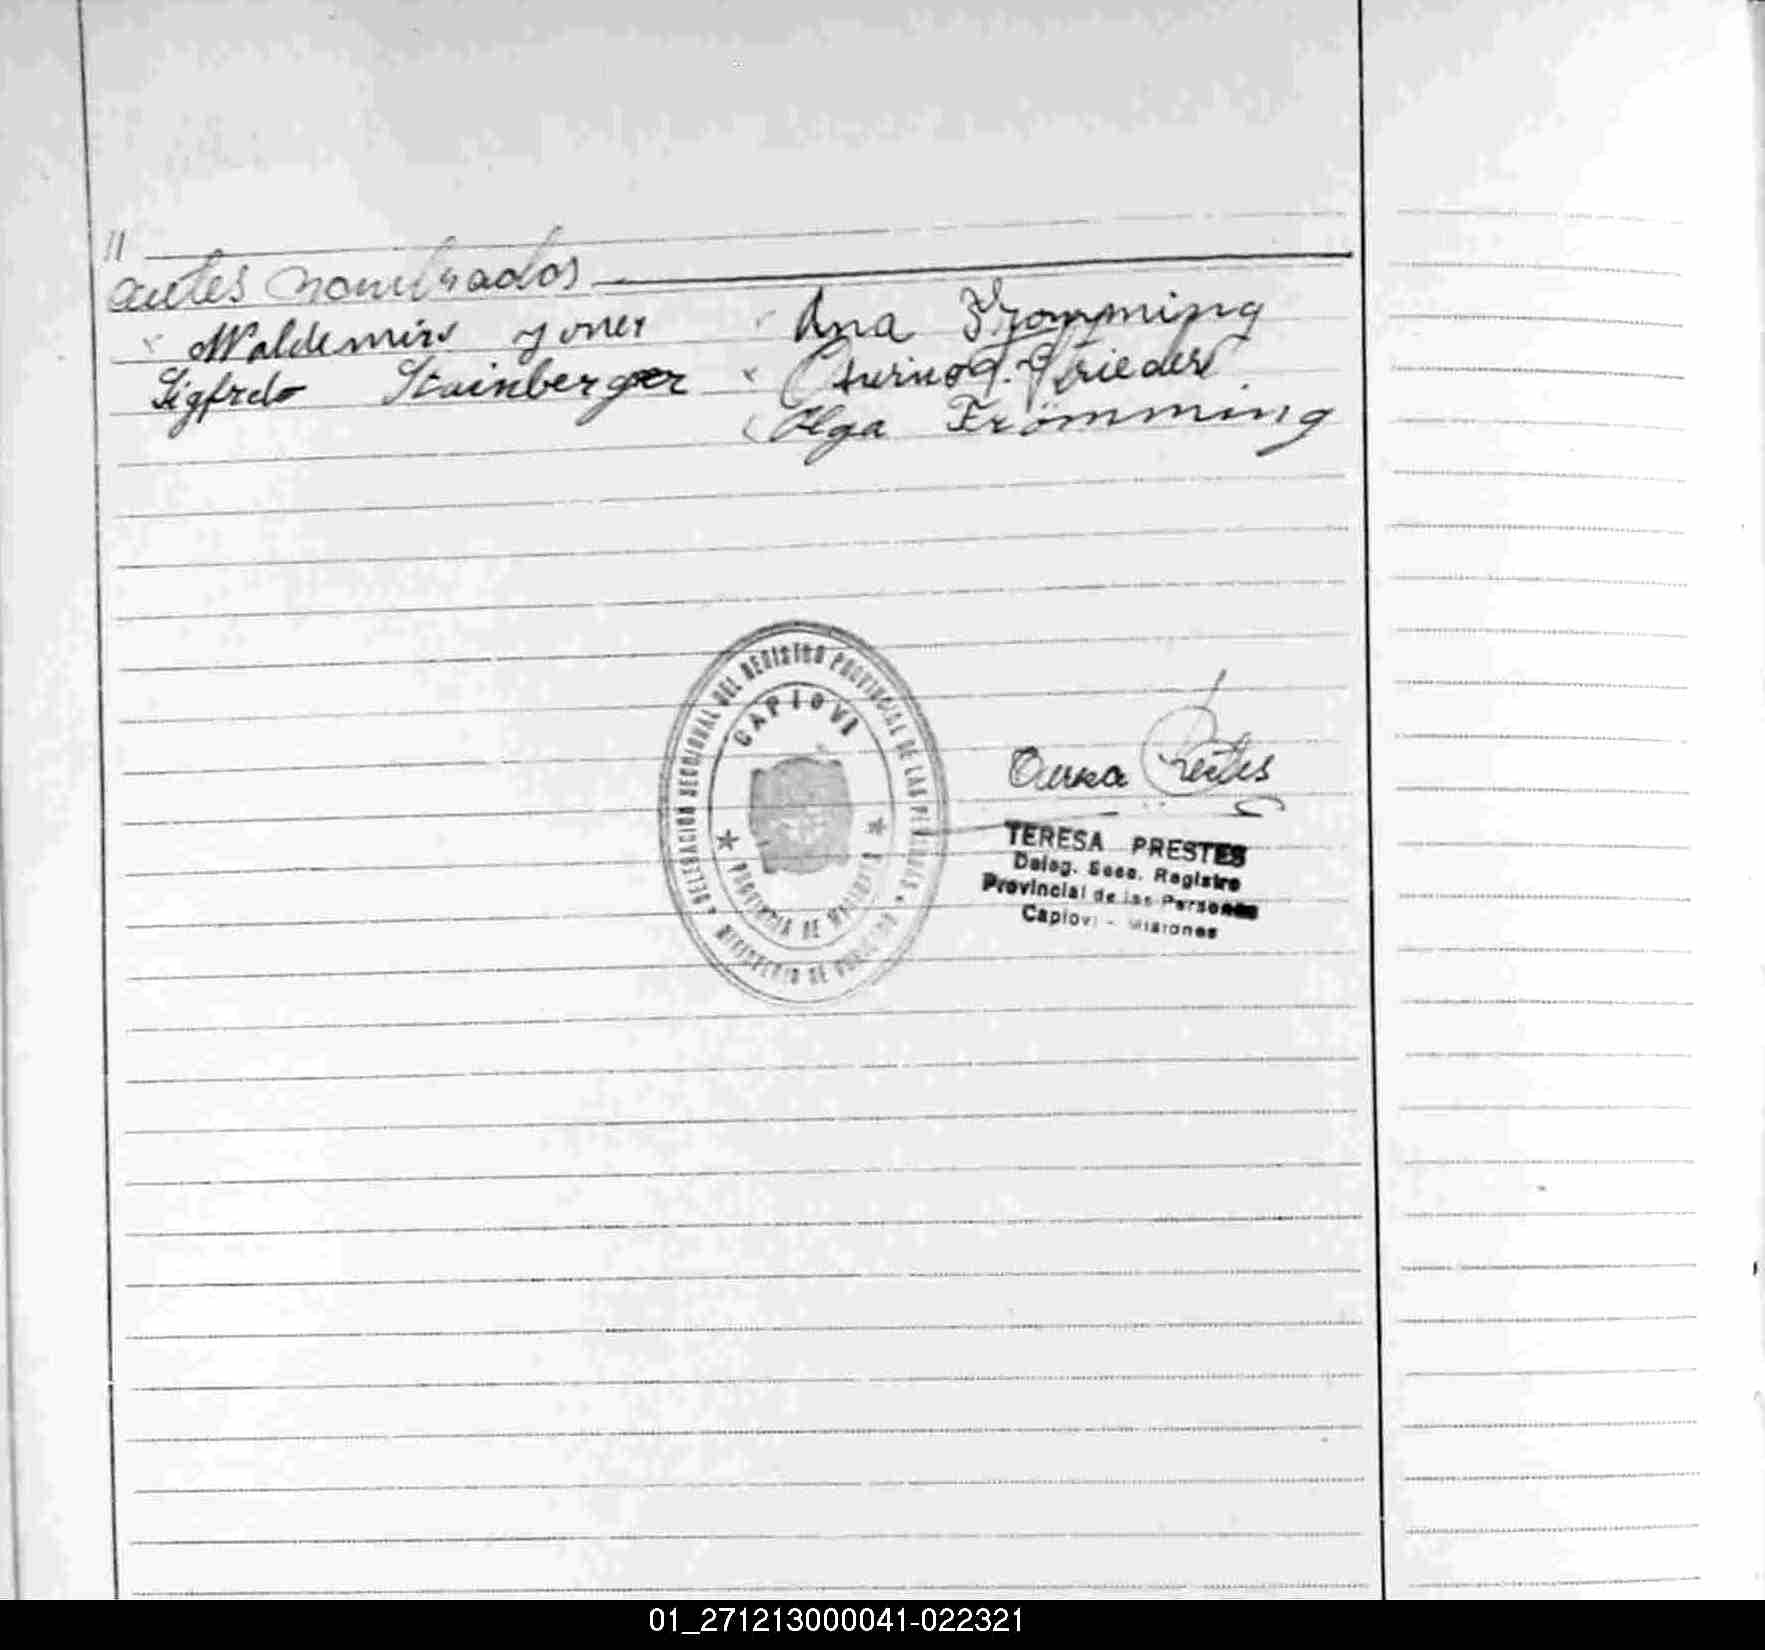 //
antes nombrados
Waldemiro Joner Ana Fromming
Sigfrdo Stainberger
Olga Frömming
DELEGACION SECCIONAL DEL REGISTRO PROVINCIAL DE LAS PERSONAS
CAPIOVI
PROVINCIA DE MISIONES
MINISTERIO DE GOBIERNO
TERESA PRESTES
Deleg. Secc. Registro
Provincial de las Personas
Capiovi - Misiones
01_271213000041-022321